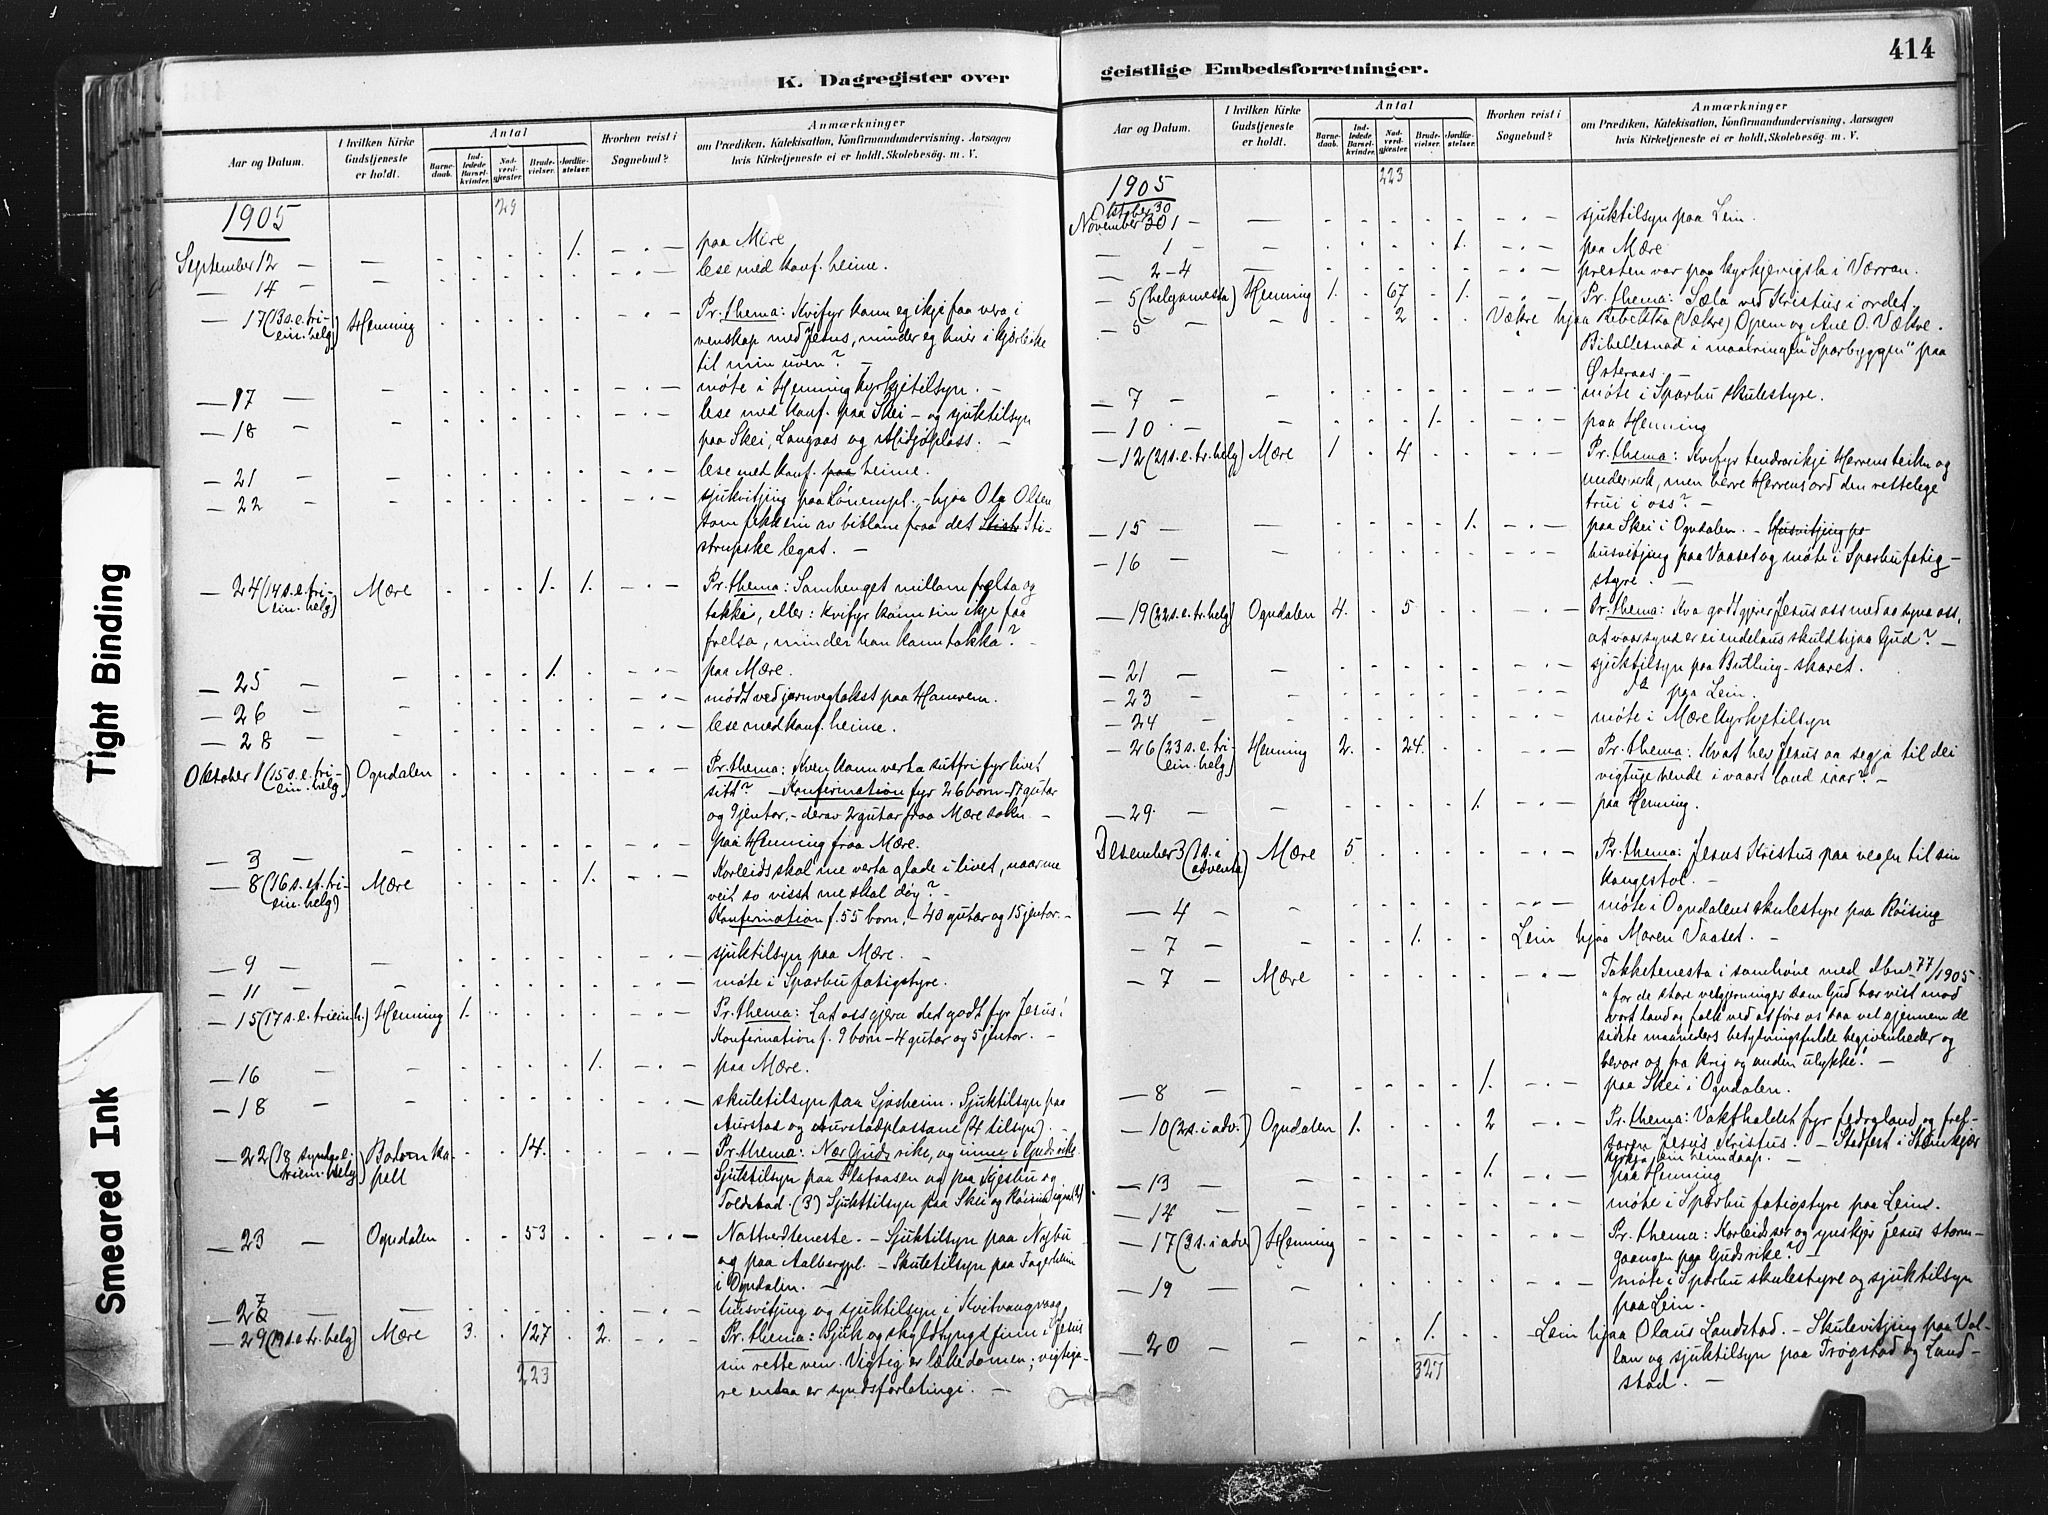 414
K. Dagregister over
geistlige Embedsforretninger.
Aar og Datum.
I hvilken Kirke Gudstjeneste er holdt.
Antal
Barnedaab.
Indledede Barselkvinder.
Nadverdgjester.
Brudevielser.
Jordfæstelser.
Hvorhen reist i Sognebud?
Anmærkninger
om Prædiken, Katekisation, Konfirmandundervisning, Aarsagen
hvis Kirketjeneste ei er holdt, Skolebesøg. m. V.
1905 29
September 12 — — 1. paa Mære
— 14 — — lese med konf. heime.
— 17 (13 s.e. tri- Henning Pr. thema: Kvifyr kann eg ikje faa vera i
ein. helg) venskap med Jesus, minder eg liver i kjærleike
til min uven? —
— 17 — — møte i Henning kyrkjetilsyn. —
— 18 — — lese med konf. paa Skei — og sjuktilsyn
paa Skei, Langaas og Midjöplass. —
— 21 — — lese med konf. paa heime.
— 22 — — sjukvitjing paa Lönempl. — hjaa Ola Olsen
som fekk ein av bitlam fraa det Sti-
strupske legat. —
— 24 (14 s.e. tri- Mære 1. 1. Pr. thema: Samhenget millom frelsa og
ein. helg) takka, eller: Kvifyr kann ein ikje faa
frelsa, minder han kann takka? —
— 25 — — 1. paa Mære.
— 26 — — mødt ved jarnvegtakst paa Hamrem.
— 28 — — lese med konf. heime.
Oktober 1 (15 s.e. tri- Ogndalen Pr. thema: Kven kann verta sutfri fyr livet
ein. helg) sitt? — Konfirmation fyr 26 born — 17 gutar
og 9 jentor, — derav 2 gutar fraa Mære sokn —
— 3 — — paa Henning fraa Mære.
— 8 (16 s. et. tri- Mære 1. Korleids skal me verta glade i livet, naar me
ein. helg) veit so visst me skal døy? —
Konfirmation f. 55 born, — 40 gutar og 15 jentor. —
— 9 — — sjuktilsyn paa Mære. —
— 11 — — møte i Sparbu fatigstyre.
— 15 (17 s.e. triein h.) Henning 1. Pr. thema: Lat oss gjera det godt fyr Jesus!
Konfirmation f. 9 born — 4 gutar og 5 jentor. —
— 16 — — 1. paa Mære.
— 18 — — skuletilsyn paa Sjøsheim. Sjuktilsyn paa
Aurstad og Aurstadplassane (4 tilsyn).
— 22 (18 syndge. Bodom ka- 14. Pr. thema: Nær Guds rike, og inne i Guds rike.
triein. helg) pell Sjuktilsyn paa Flataasen og paa Kjesbu og
Toldstad (3) Sjukttilsyn paa Skei og Röising igjen (2)
— 23 Ogndalen 53 Nattverdteneste. — Sjuktilsyn paa Nybu
og paa Aalbergpl. — Skuletilsyn paa Fagerheim
i Ogndalen. —
— 27 — — husvitjing og sjuktilsyn i Kvitvangvaag
— 29 (19 s.e. tr. helg) Mære 3. 127 2. Pr. thema: Sjuk og skyldtyngd finn i Jesus
223 sin rette ven. Vigtig er lækedomen; vigtiga-
re endaa er syndsforlatingi. —
Aar og Datum.
I hvilken Kirke Gudstjeneste er holdt.
Antal
Barnedaab.
Indledede Barselkvinder.
Nadverdgjester.
Brudevielser.
Jordfæstelser.
Hvorhen reist i Sognebud?
Anmærkninger
om Prædiken, Katekisation, Konfirmandundervisning, Aarsagen
hvis Kirketjeneste ei er holdt, Skolebesøg. m. V.
1905 223
Oktober 30
November 30 1 — — sjuktilsyn paa Lein.
— 1 — — 1. paa Mære
— 2-4 — presten var paa kyrkjevigsla i Værran.
— 5 (helgamessa) Henning 1. 67 1. Pr. thema: Sæla ved Kristus i ordet.
— 5 — — 2 Vækre hjaa Rebekka (Vækre) Opem og Ane O. Vækre.
Bibellesnad i maalringen "Sparbyggjen" paa
Østeraas.
— 7 — — møte i Sparbu skulestyre.
— 10 — — 1. paa Henning
— 12 (21 s.e. tr. helg) Mære 1 4 Pr. thema: Kvifyr tendrar ikje Herrens teikn og
underverk, men berre Herrens ord den rettelege
trui i oss? —
— 15 — — 1. paa Skei i Ogndalen. — Husvitjing pa
— 16 — — husvitjing paa Vaaset og møte i Sparbu fatig-
styre. —
— 19 (22 s.e. tr. helg) Ogndalen 4. 5 Pr. thema: Kva godt gjerer Jesus oss med aa syna oss,
at vaar synd er ei endelaus skuld hjaa Gud? —
— 21 — — sjuktilsyn paa Butling-skaret.
— 23 — — do paa Lein.
— 24 — — møte i Mære kyrkjetilsyn
— 26 (23 s.e. tri- Henning 2. 24. Pr. thema: Kvat hev Jesus aa segja til dei
ein. helg) vigtuge hende i vaart land iaar? —
— 29 — 1. paa Henning.
Desember 3 (1 s. i Mære 5 Pr. thema: Jesus Kristus paa vegen til sin
adventa) kongestol. —
— 4 — — møte i Ogndalens skulestyre paa Röising
— 7 — — 1. Lein hjaa Maren Vaaset. —
— 7 — Mære Takketenesta i samhøve med Abns 77/1905
"for de store velgjerninger som Gud har vist mod
vort land og folk ved at føre os saa vel gjennem de
sidste maaneders betydningsfulde begivenheder og
bevar os fra krig og anden ulykke!" —
— 8 — 1. paa Skei i Ogndalen.
— 10 (2 s. i adv.) Ogndalen 1. 2 Pr. thema: Vakthaldet fyr fedraland og frel-
saren Jesus Kristus. — Stadfest i Steinkjær
kyrkja ein heimdaap.
— 13 — — 1. paa Henning
— 14 — — møte i Sparbu fatigstyre paa Leim.
— 17 (3 s. i adv) Henning Pr. thema: Korleids ser og ynskjer Jesus storm-
gaangen paa Guds rike? —
— 19 — — møte i Sparbu skulestyre og sjuktilsyn
paa Lein.
— 20 — — 1. Lein hjaa Olaus Landstad. — Skulevitjing paa Val-
327 lan og sjuktilsyn paa Trøgstad og Land-
stad. —
Tight Binding
Smeared Ink